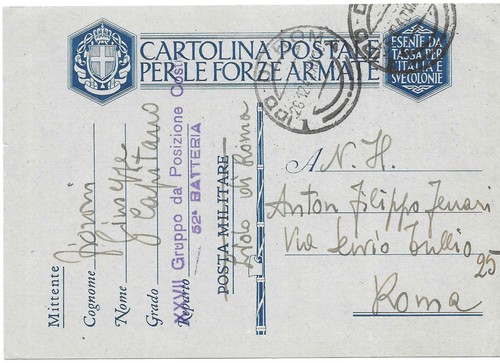 CARTOLINA POSTALE
PER LE FORZE ARMATE
ESENTE DA
TASSA PER
L'ITALIA E
SVE COLONIE
ROMA
A N. H.
Anton Filippo
Via Servio Tullio
25
Roma
Mittente
Cognome
Nome Giuseppe
Grado Capitano
Reparto
XXVII Gruppo da Posizione Cost
52ª BATTERIA
POSTA MILITARE
Lido di Roma